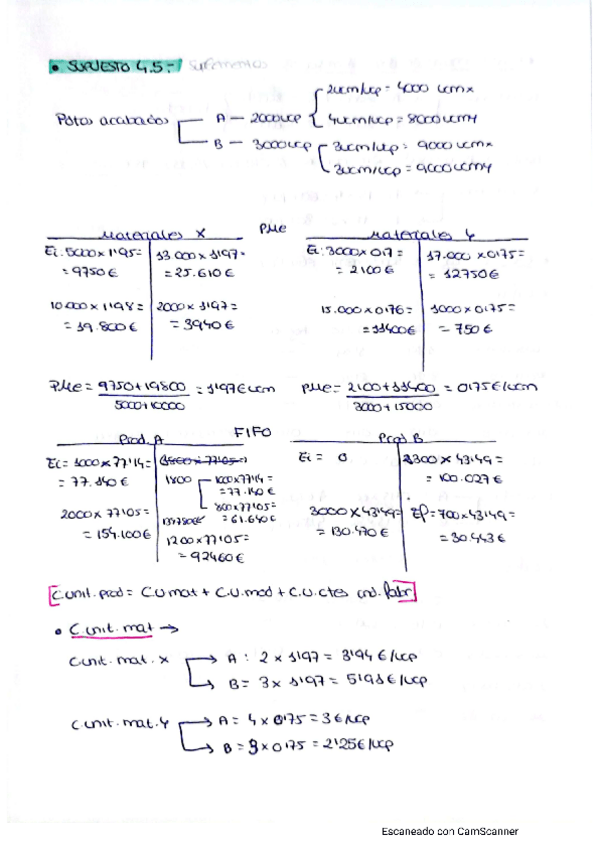 • SUPUESTO 4.5.-
Ptos acabados
A - 2000 ucp
2ucm/ucp = 4000 ucmx
4ucm/ucp = 8000 ucmy
B - 3000 ucp
3ucm/ucp = 9000 ucmx
3ucm/ucp = 9000 ucmy
PMe
Materiales X
Ei: 5000 x 1'95 =
= 9750 €
10.000 x 1'98 =
= 19.800 €
13.000 x 1'97 =
= 25.610 €
2000 x 1'97 =
= 3940 €
Materiales Y
Ei: 3000 x 0'7 =
= 2100 €
15.000 x 0'76 =
= 11400 €
17.000 x 0'75 =
= 12750 €
1000 x 0'75 =
= 750 €
PMe = 9750 + 19800 = 1'97 €/ucm
5000 + 10000
PMe = 2100 + 11400 = 0'75 €/ucm
3000 + 15000
FIFO
Prod. A
Ei = 1000 x 77'14 =
= 77.140 €
2000 x 77'05 =
= 154.100 €
1800 x 77'05 =
1800
1000 x 77'14 =
= 77.140 €
800 x 77'05 =
= 61.640 €
138780 €
1200 x 77'05 =
= 92460 €
Prod B
Ei = 0
3000 x 43'49 =
= 130.470 €
2300 x 43'49 =
= 100.027 €
EF = 700 x 43'49 =
= 30.443 €
C.unit. prod = C.U mat + C.U. mod + C.U. ctes ind. fabr
• C.unit. mat →
C.unit. mat. x
A: 2 x 1'97 = 3'94 €/ucp
B = 3 x 1'97 = 5'91 €/ucp
C.unit. mat. y
A = 4 x 0'75 = 3 €/ucp
B = 3 x 0'75 = 2'25 €/ucp
Escaneado con CamScanner